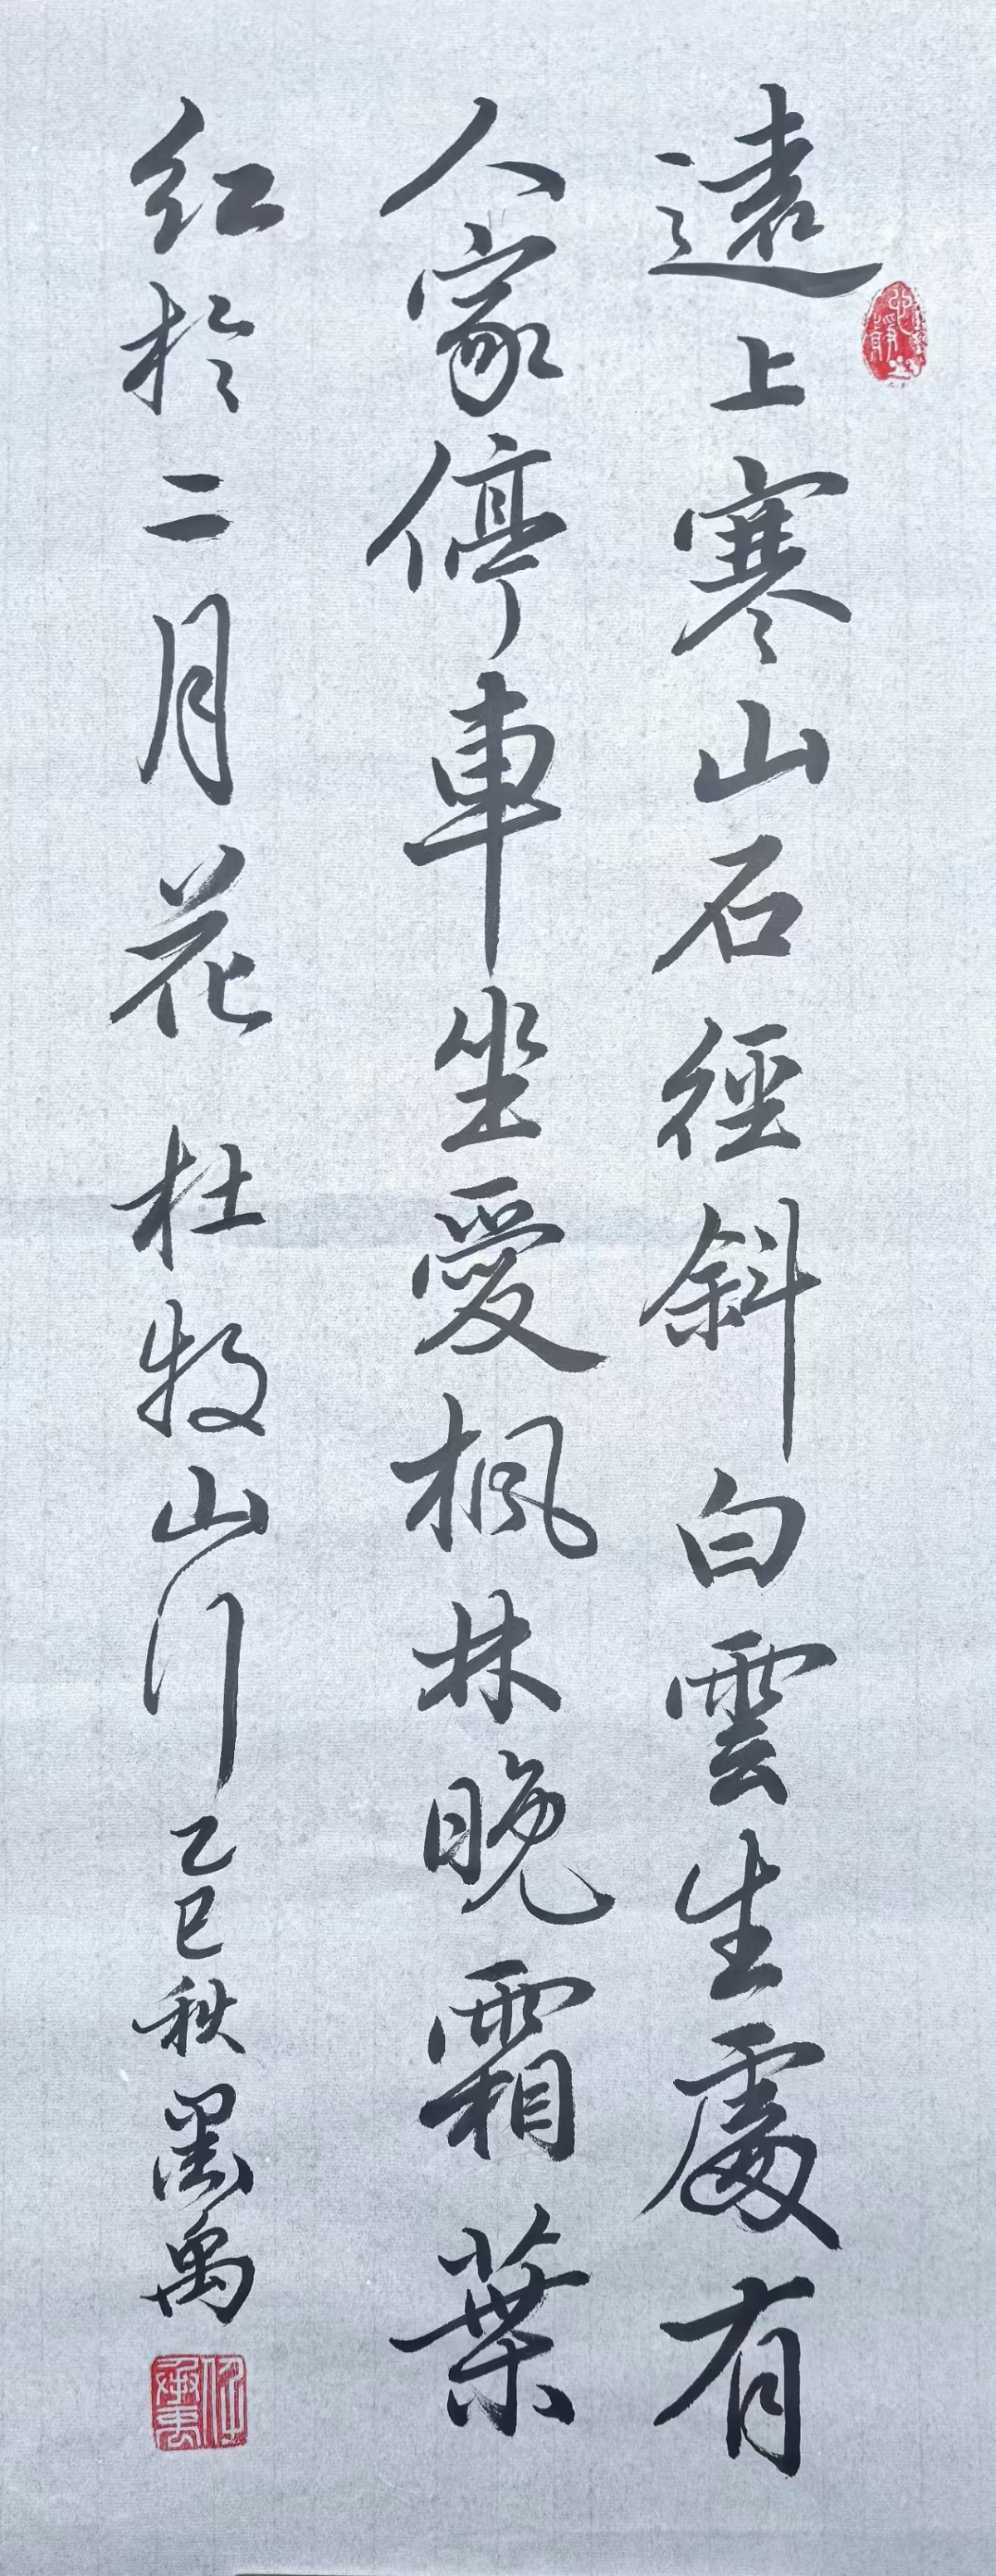 遠上寒山石徑斜白雲生處有
人家停車坐愛楓林晚霜葉
红於二月花 杜牧山行 乙巳秋墨禹